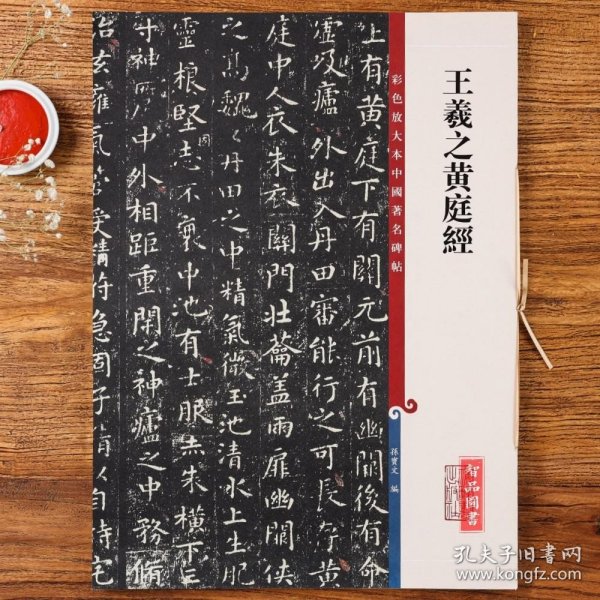 王羲之黄庭經
彩色放大本中國著名碑帖
孫寶文 編
智品圖書
上有黄庭下有關元前有幽闕後有命
廬㕦廬外出入丹田審能行之可長存黄
庭中人衣朱衣關門壯蘥盖兩扉幽闕侠
之高魏丶丹田之中精氣微玉池清水上生肥
靈根堅志不衰中池有士服赤朱橫下三
寸神所中外相距重閉之神廬之中務脩
治玄廱氣管受精符急固子精以自持宅
固
孔夫子旧書网
www.kongfz.com